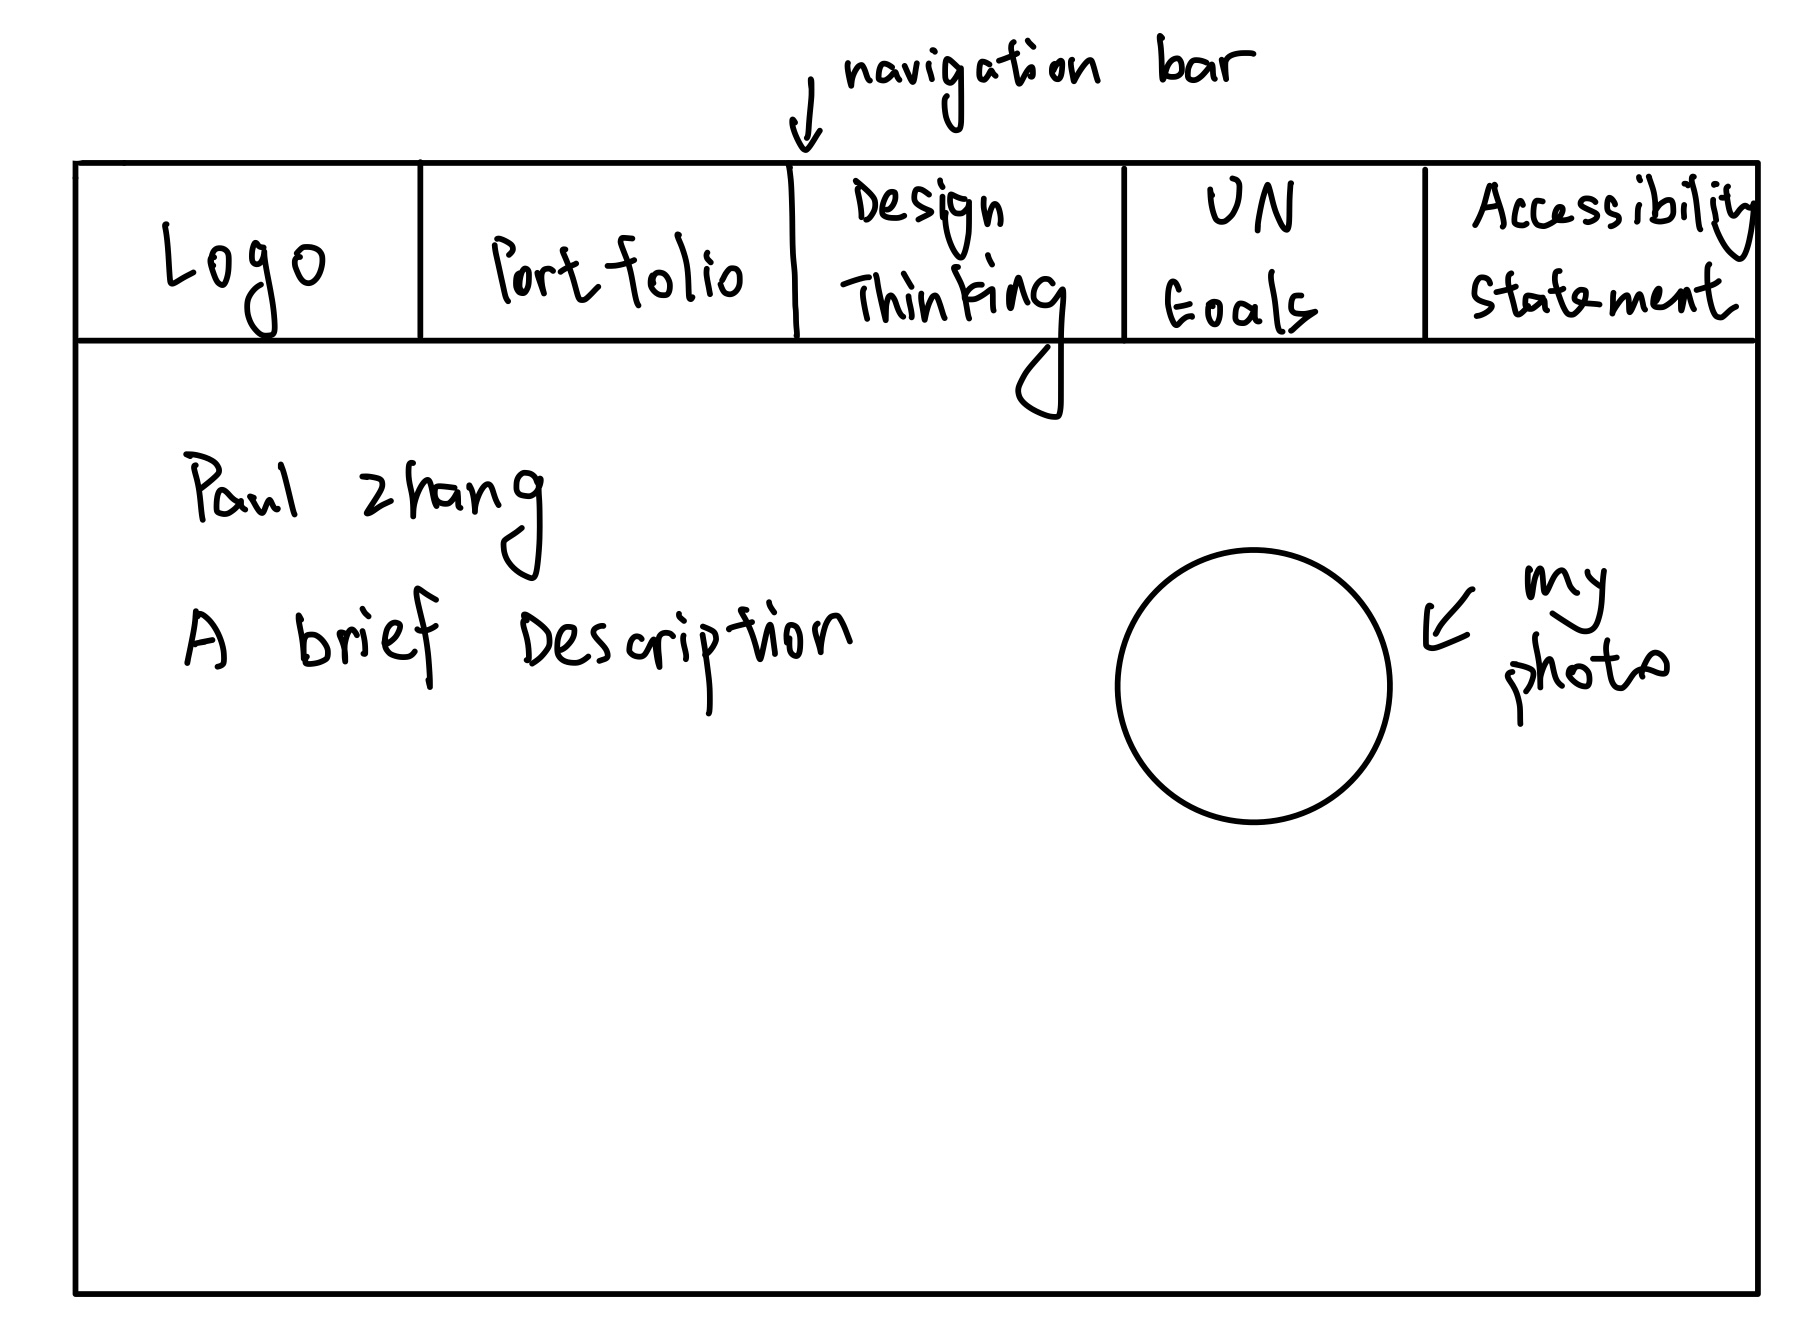 navigation bar
Logo
Portfolio
Design
Thinking
UN
Goals
Accessibility
Statement
Paul Zhang
A brief Description
my
photo